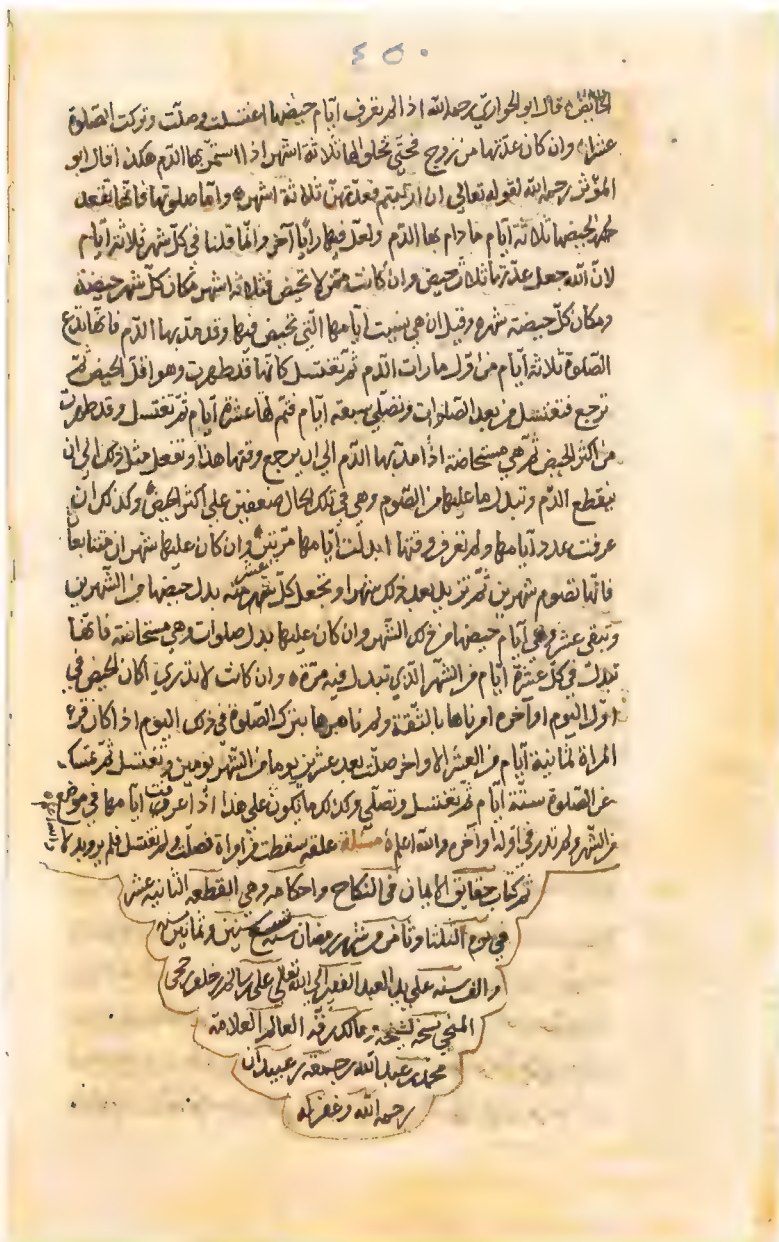 ٤٥٠
الحائض قال ابو الحواري رحمه الله اذا لم تعرف ايام حيضها اغتسلت وصلت وتركت الصلوة
عشرا وان كان عدتها من زوج فحتى تخلو لها ثلاثة اشهر اذا استمر بها الدم هكذا قال ابو
المؤثر رحمه الله لقوله تعالى ان ارتبتم فعدتهن ثلاثة اشهر واما صلوتها فانها تقعد
لحيضها ثلاثة ايام مادام بها الدم ولعل فيها رايا آخر وانما قلنا في كل شهر ثلاثة ايام
لان الله جعل عدتها ثلاث حيض وان كانت ممن لا تحيض فثلاثة اشهر مكان كل شهر حيضة
ومكان كل حيضة شهر وقيل ان هي نسيت ايامها التي تحيض فيها وقد مد بها الدم فانها تدع
الصلوة ثلاثة ايام من اول ما رات الدم ثم تغتسل كانها قد طهرت وهو اقل الحيض ثم
ترجع فتغتسل من بعد الصلوات وتصلي سبعة ايام فتم لها عشرة ايام ثم تغتسل وقد طهرت
من اكثر الحيض ثم هي مستحاضة اذا مد بها الدم الى ان يرجع وقتها هذا وتفعل مثل ذلك الى ان
ينقطع الدم وتبدل ما عليها من الصوم وهي في تلك الحال ضعفين على اكثر الحيض وكذلك ان
عرفت عدد ايامها ولم تعرف وقتها ابدلت ايامها مرتين وان كان عليها شهران متتابعا
فانها تصوم شهرين ثم تزيد بعد ذلك شهرا وتجعل كل عشر منه بدل حيضها من الشهرين
وتبقى عشر وهي ايام حيضها من ذلك الشهر وان كان عليها بدل صلوات وهي مستحاضة فانها
تبدل في كل عشرة ايام من الشهر الذي تبدل فيه مرة وان كانت لا تدري اكان الحيض في
اول اليوم او آخره امرناها بالثقة ولم نامرها بترك الصلوة في ذلك اليوم اذا كان قرء
المراة ثمانية ايام من العشر الاواخر صلت بعد عشرين يوما من الشهر يومين وتغتسل ثم تمسك
عن الصلوة ستة ايام ثم تغتسل وتصلي وكذلك ما يكون على هذا اذا عرفت ايامها في موضع
من الشهر ولم تدر في اوله او آخره والله اعلم مسئلة علقه سقطت من امراة فصلت ولم تغتسل فلم ير وبدلا
والله اعلم
تم كتاب حقايق الايمان في النكاح واحكامه وهي القطعه الثانية عشر
في يوم الثلثا وثامن من شهر رمضان سنة تسع سنين وثمانين
والف سنه على يد العبد الفقير الى الله تعالى علي بن سالم بن خلف بن حجي
المنحي نسخه لشيخه ومالك رقه العالم العلامه
محمد بن عبد الله بن جمعه بن عبيدان
رحمه الله وغفر له